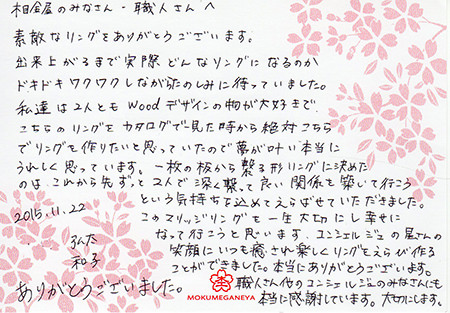 相金屋のみなさん・職人さんへ
素敵なリングをありがとうございます。
出来上がるまで実際どんなリングになるのか
ドキドキワクワクしながらたのしみに待っていました。
私達は2人ともWoodデザインの物が大好きで
こちらのリングをカタログで見た時から絶対こちら
でリングを作りたいと思っていたので夢が叶い本当に
うれしく思っています。一枚の板から繋る形リングに決めた
のは、これから先ずっと2人で深く繋って良い関係を築いて行こう
という気持ちを込めてえらばせていただきました。
このマリッジリングを一生大切にし幸せに
なって行こうと思います。コンシェルジュの皆さんの
笑顔にいつも癒され楽しくリングをえらび作る
ことができました。本当にありがとうございます。
職人さん他のコンシェルジュのみなさんにも
本当に感謝しています。大切にします。
2015.11.22
弘太
和子
ありがとうございました。
MOKUMEGANEYA